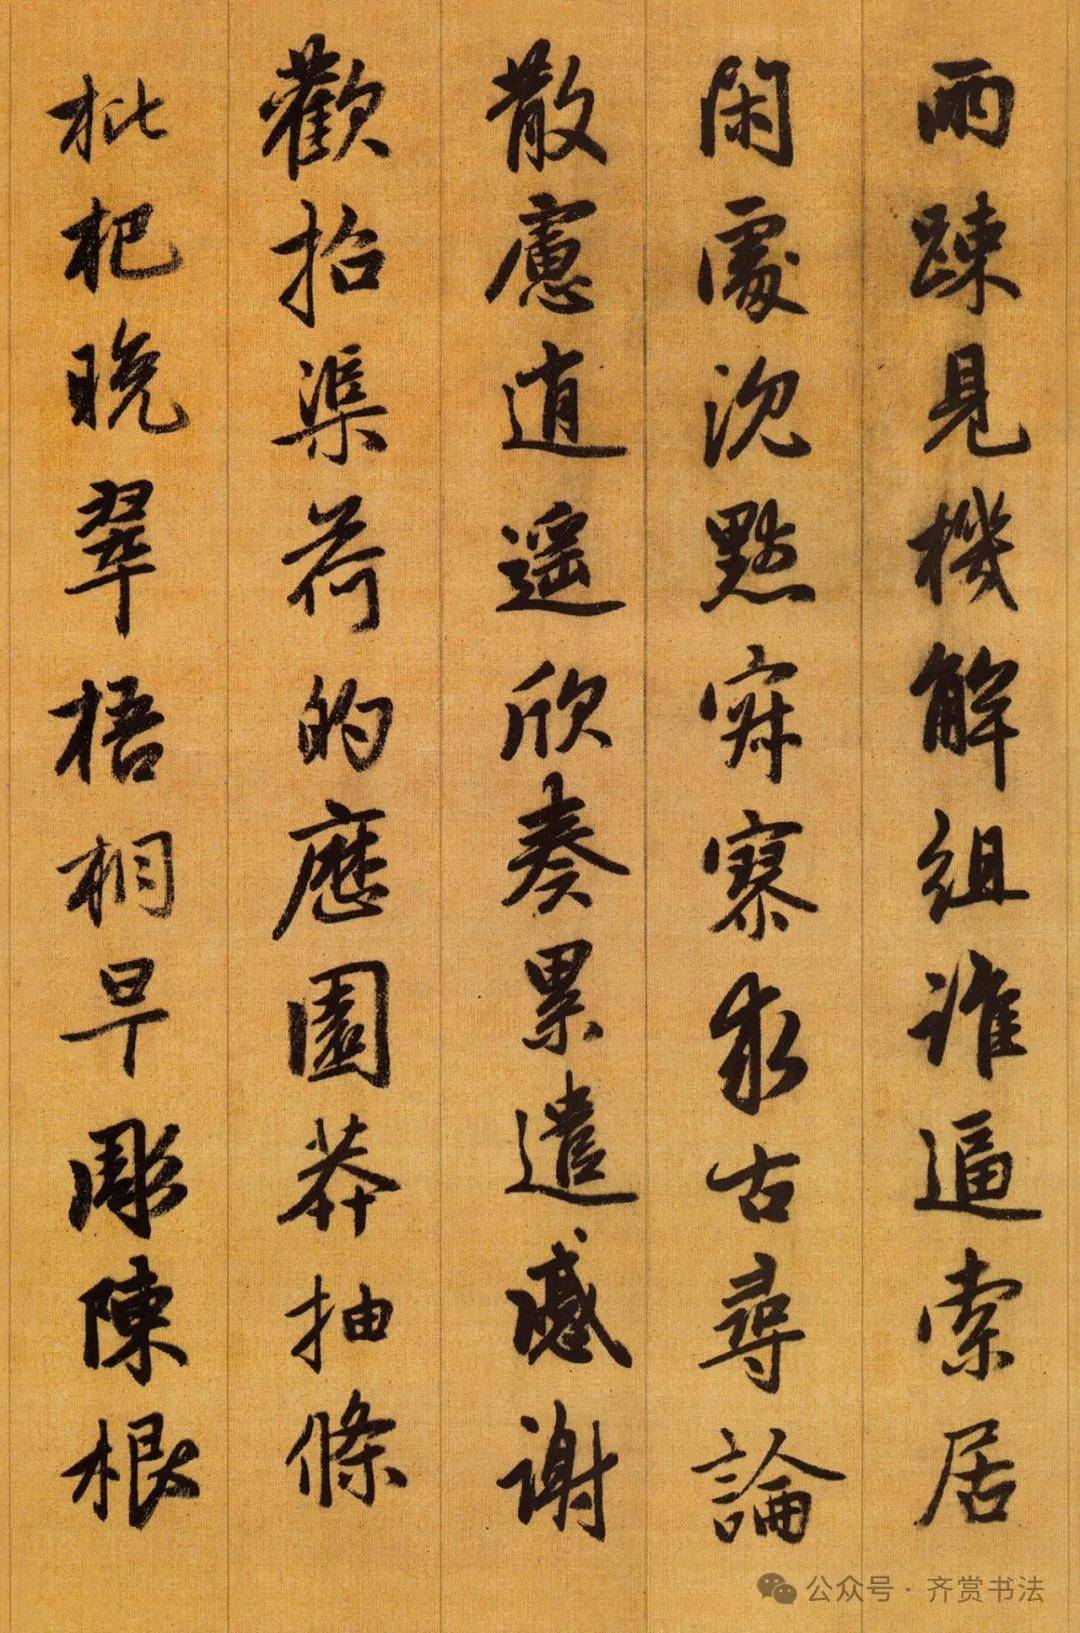 兩疎見機解組誰逼索居
閑處沉默寂寥求古尋論
散慮逍遥欣奏累遣慼謝
歡招渠荷的歷園莽抽條
枇杷晚翠梧桐早彫陳根
公众号·齐赏书法